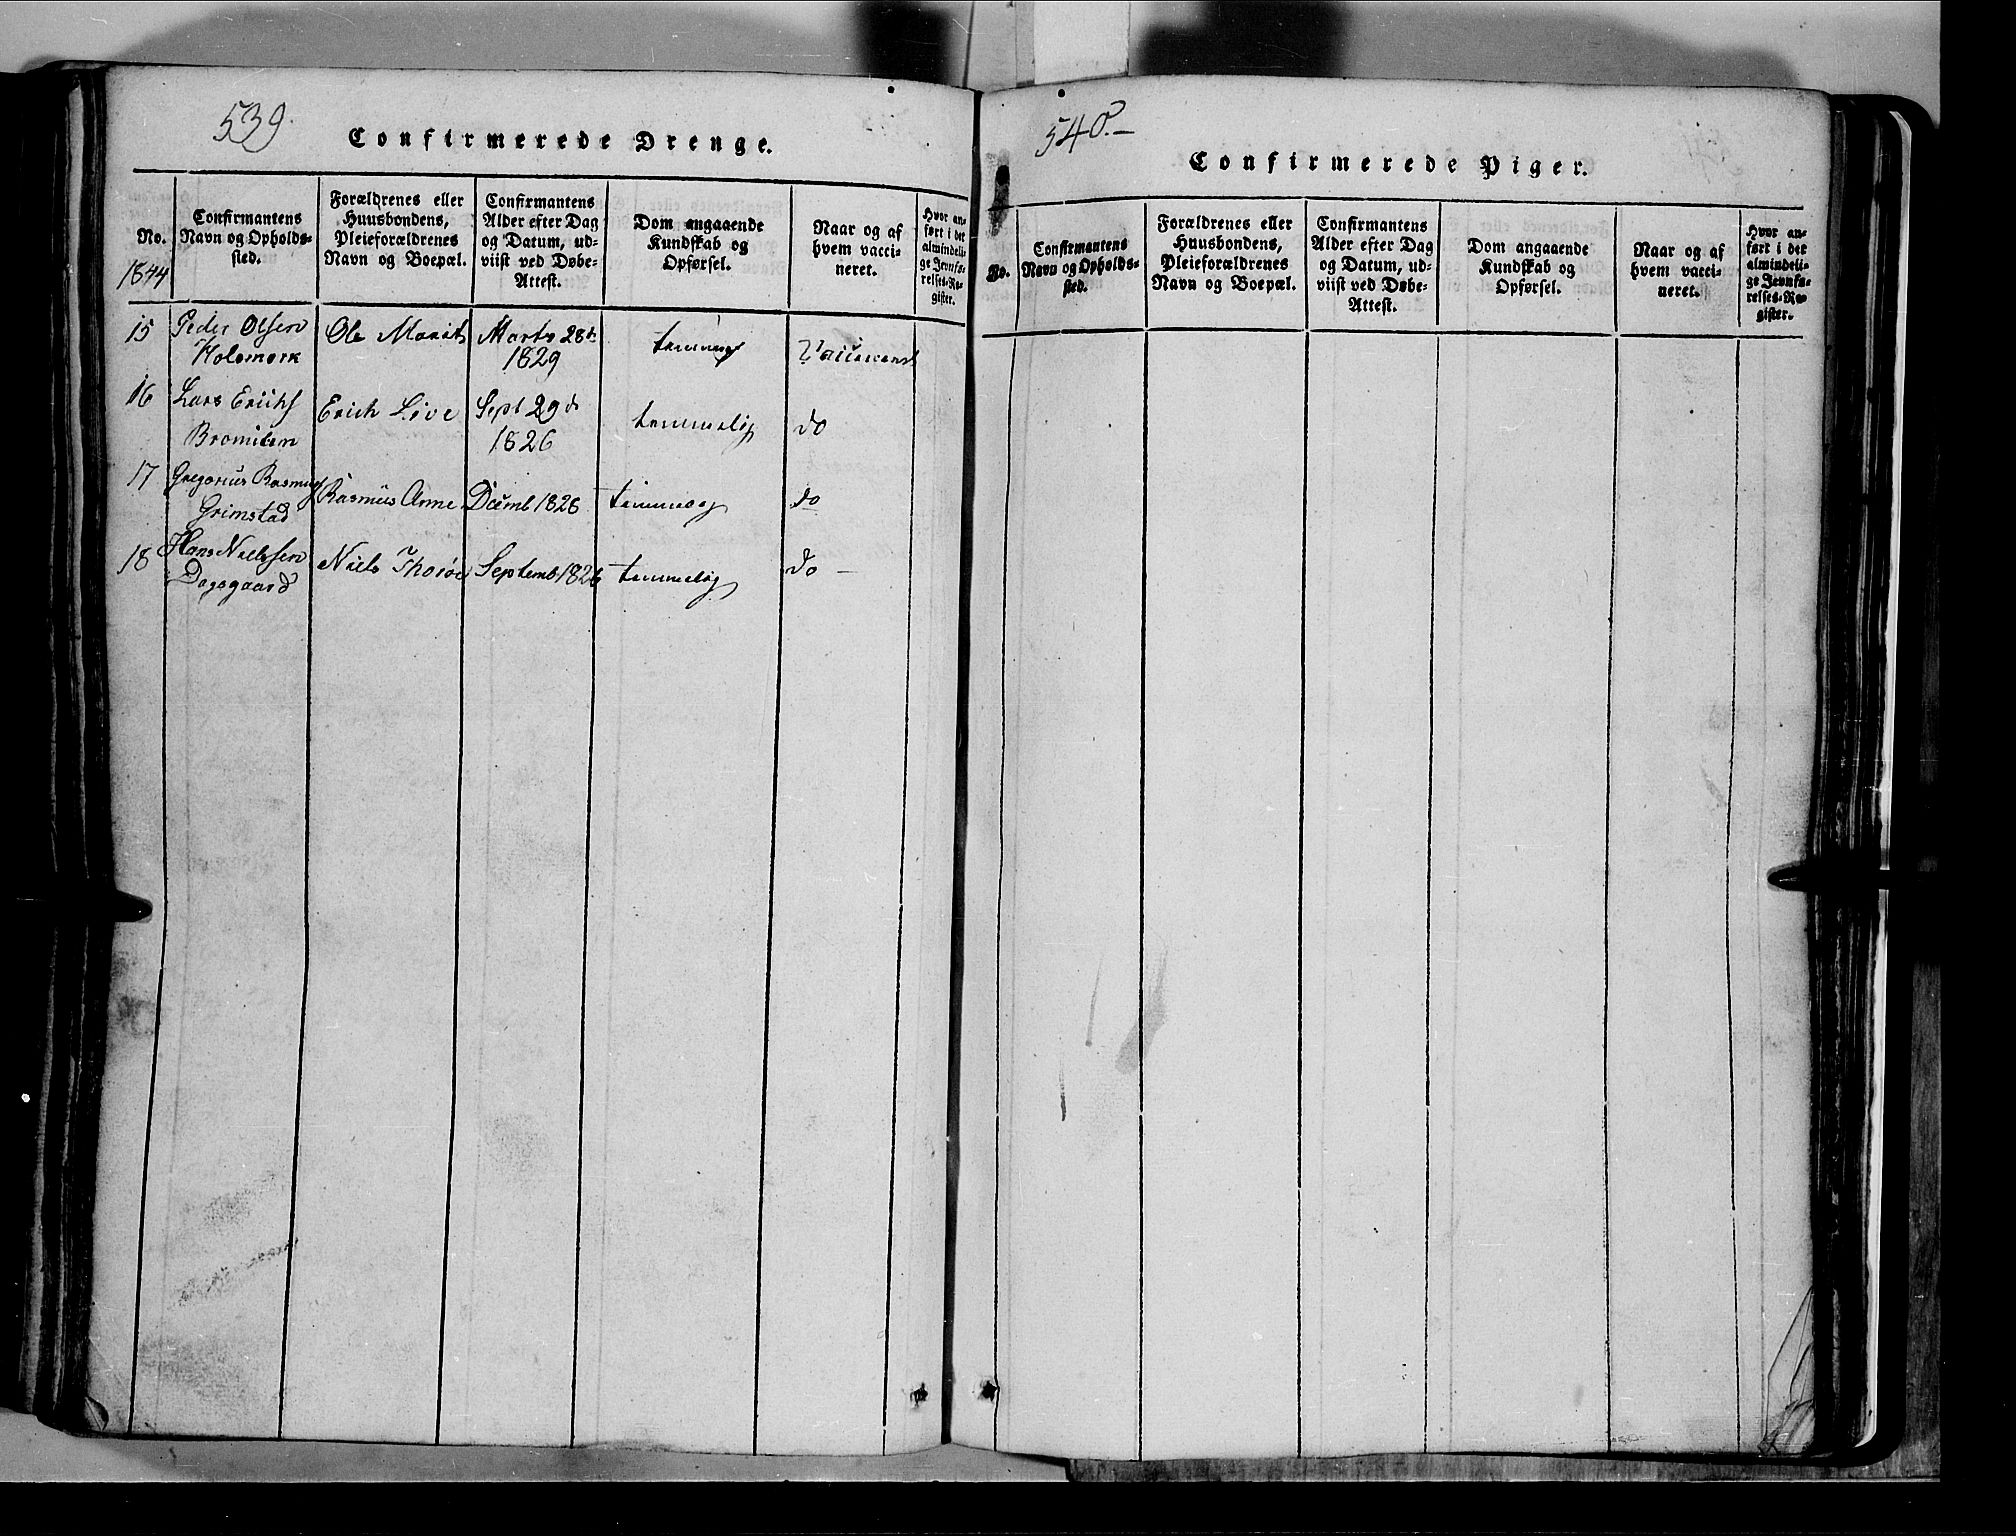 539.
Confirmerede Drenge.
No.
1844
Confirmantens
Navn og Opholds-
sted.
Forældrenes eller
Huusbondens,
Pleieforældrenes
Navn og Boepæl.
Confirmantens
Alder efter Dag
og Datum, ud-
viist ved Døbe-
Attest.
Dom angaaende
Kundskab og
Opførsel.
Naar og af
hvem vacci-
neret.
Hvor an-
ført i det
almindeli-
ge Jevnfø-
relses-Re-
gister.
15 Peder Olsen
Holsmork
Ole Marit
Marts 28d
1829
16 Lars Erichs
Bromilem
Erich Live
Sept 29d
1826
temmelig
do
17 Gregorius Rasmus
Grimstad
Rasmus Anne
Decmb 1828
do
18 Hans Nielssen
Dagsgaard
Niels
Septemb 1826
temmelig
do –
540.–
Confirmerede Piger.
No.
Confirmantens
Navn og Opholds-
sted.
Forældrenes eller
Huusbondens,
Pleieforældrenes
Navn og Boepæl.
Confirmantens
Alder efter Dag
og Datum, ud-
viist ved Døbe-
Attest.
Dom angaaende
Kundskab og
Opførsel.
Naar og af
hvem vacci-
neret.
Hvor an-
ført i det
almindeli-
ge Jevnfø-
relses-Re-
gister.